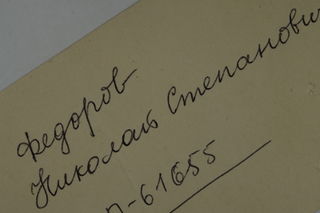 Федоров
Николай Степанович
П-61655